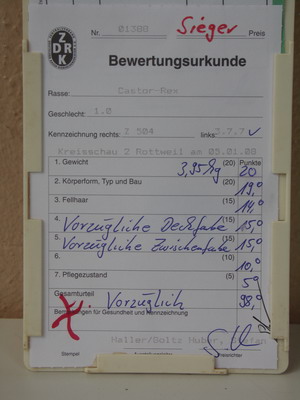 Nr. 01388 Sieger Preis
Z
DR
K
Bewertungsurkunde
Rasse: Castor-Rex
Geschlecht: 1.0
Kennzeichnung rechts: Z 504 links: 3.7.7
Kreisschau 2 Rottweil am 05.01.08
1. Gewicht 3,95 kg (20) Punkte 20
2. Körperform, Typ und Bau (20) 19,0
3. Fellhaar (15) 14,0
4. Vorzügliche Deckfarbe (15) 15,0
5. Vorzügliche Zwischenfarbe (15) 15,0
6. (10) 10,0
7. Pflegezustand (5) 5,0
Gesamturteil Vorzüglich 98,0
Bemerkungen für Gesundheit und Kennzeichnung
Haller/Goltz Huber, Stefan
Stempel Preisrichter